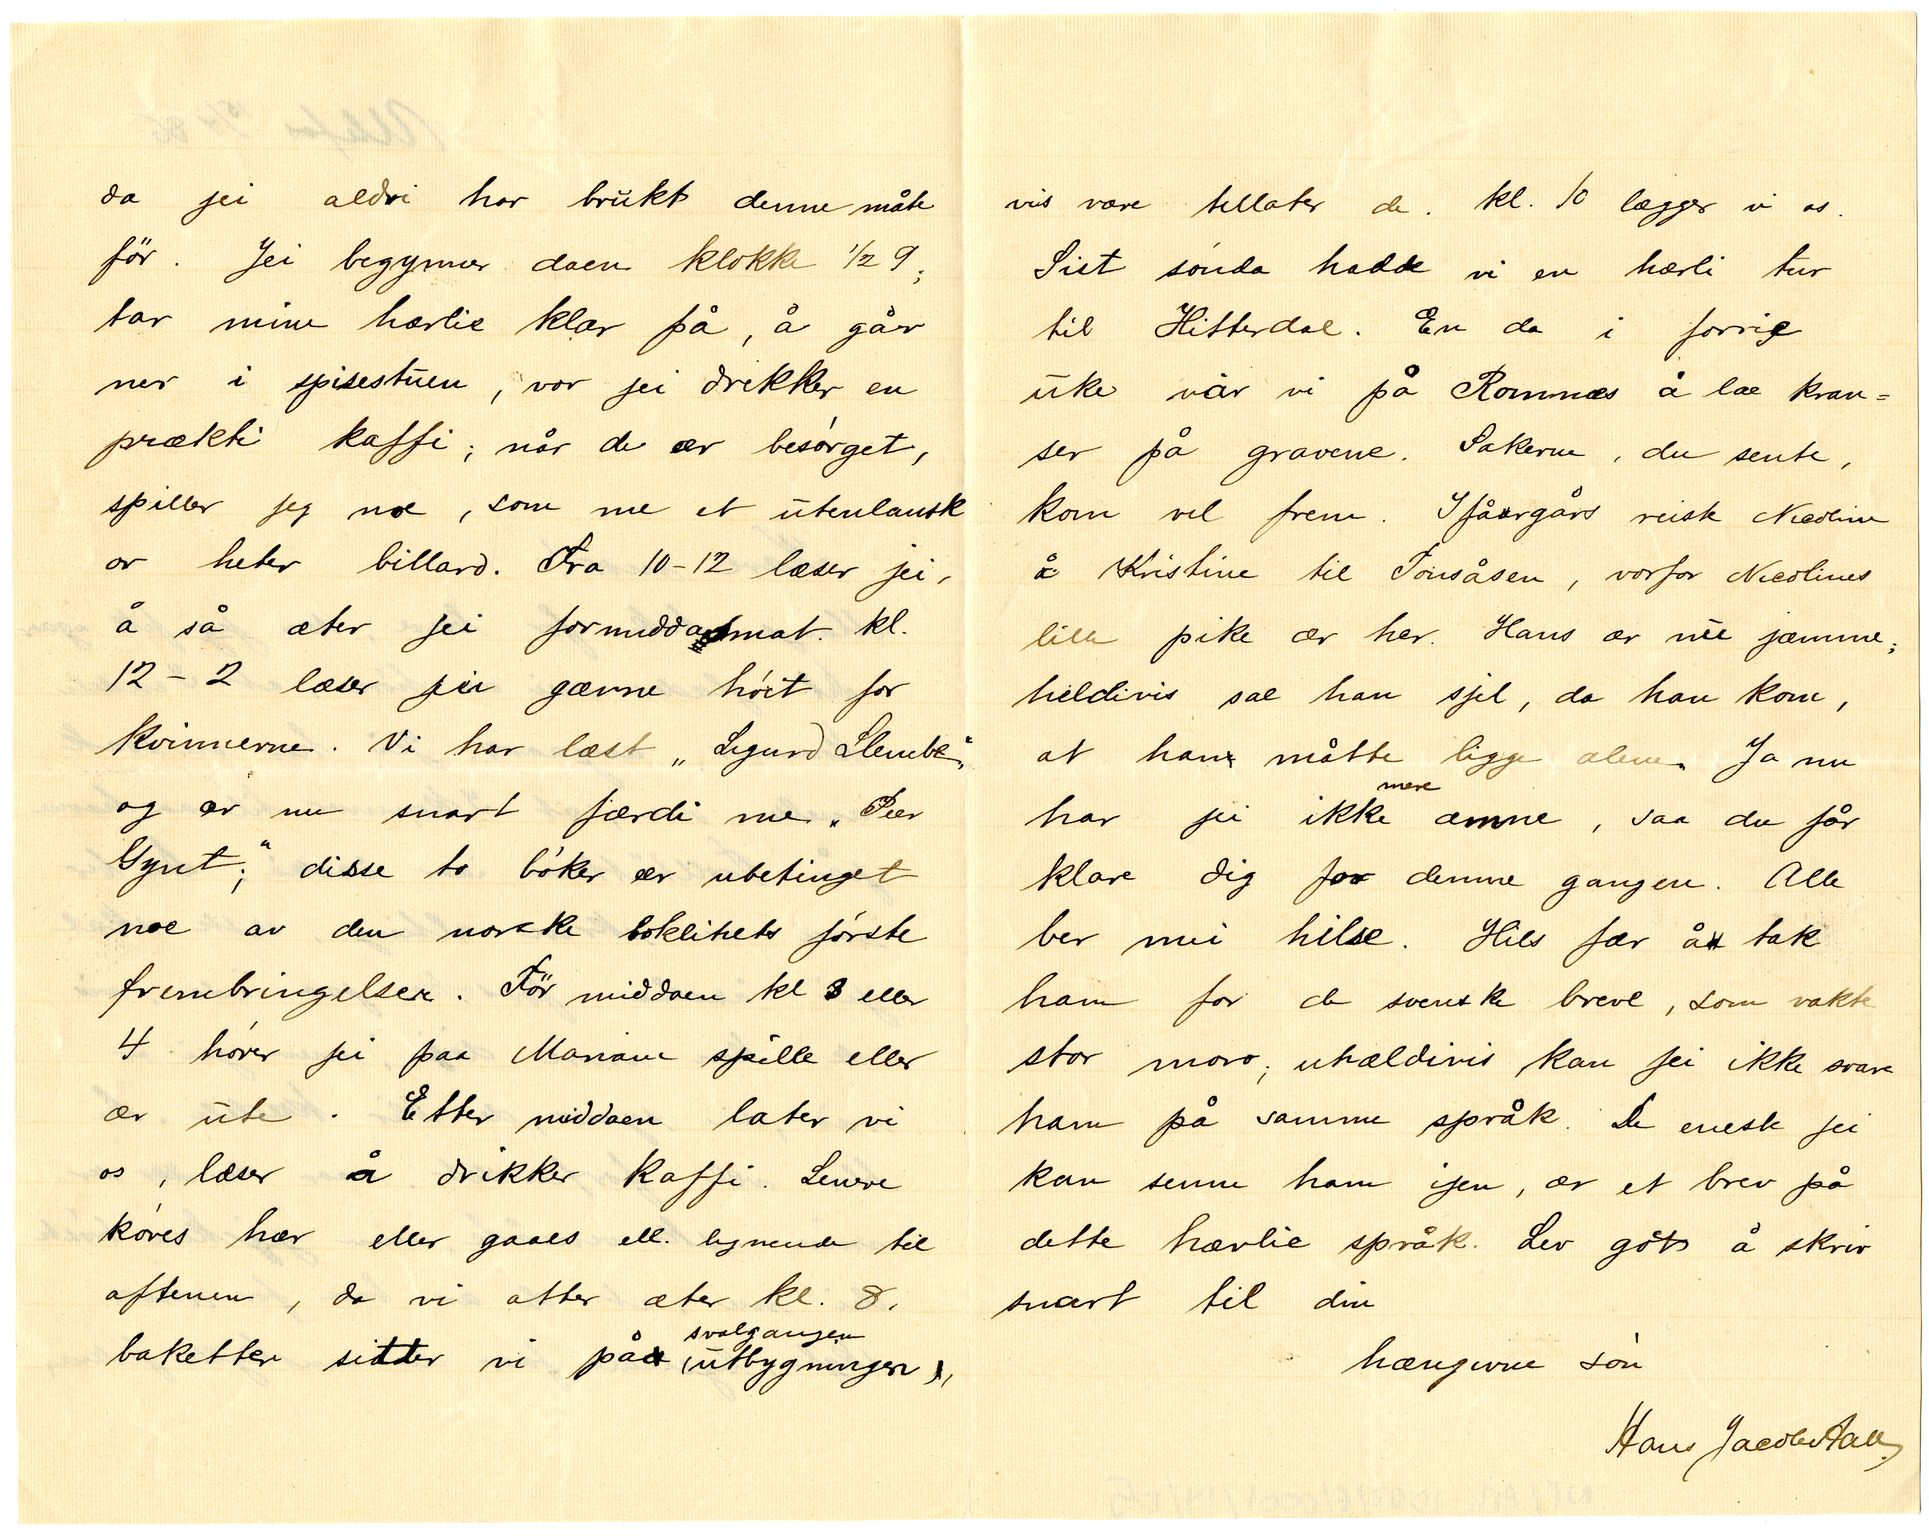 da jei aldri har brukt denne måte
før. Jei begynner daen klokke 1/2 9;
tar mine hærlie klær på, å går
ner i spisestuen, vor jei drikker en
prækti kaffi; når de ær besørget,
spiller jeg noe, som me et utenlansk
or heter billard. Fra 10-12 læser jei,
å så æter jei formiddasmat. kl.
12-2 læser jei gærne høit for
kvinnerne. Vi har læst „Sigurd Slembe“,
og ær nu snart færdi me „Peer
Gynt;“ disse to bøker ær ubetinget
noe av den norske boklihets første
frembringelser. Før middaen kl 3 eller
4 hører jei paa Mariane spille eller
ær ute. Etter middaen later vi
os, læser å drikker kaffi. Senere
køres hær eller gaaes ell. lignende til
aftenen, da vi atter æter kl. 8.
baketter sitter vi på svalgangen (utbygningen),
vis være tillater de. kl. 10 lægger vi os.
Sist sønda hadde vi en hærli tur
til Hitterdal. En da i forrige
uke vår vi på Romnæs å lae kran=
ser på gravene. Sakerne, du sente,
kom vel frem. Iforgårs reiste Nicoline
å Kristine til Tonsåsen, vorfor Nicolines
lille pike ær hær. Hans ær nu jæmme;
heldivis sae han sjel, da han kom,
at han måtte ligge alene. Ja nu
har jei ikke mere æmne, saa du får
klare dig for denne gangen. Alle
ber mei hilse. Hils fær å tak
ham for de svenske breve, som vakte
stor moro; uhældivis kan jei ikke svare
ham på samme språk. De eneste jei
kan senne ham ijen, ær et brev på
dette hærlie språk. Lev gått å skriv
snart til din
hængivne søn
Hans Jacob Aall.